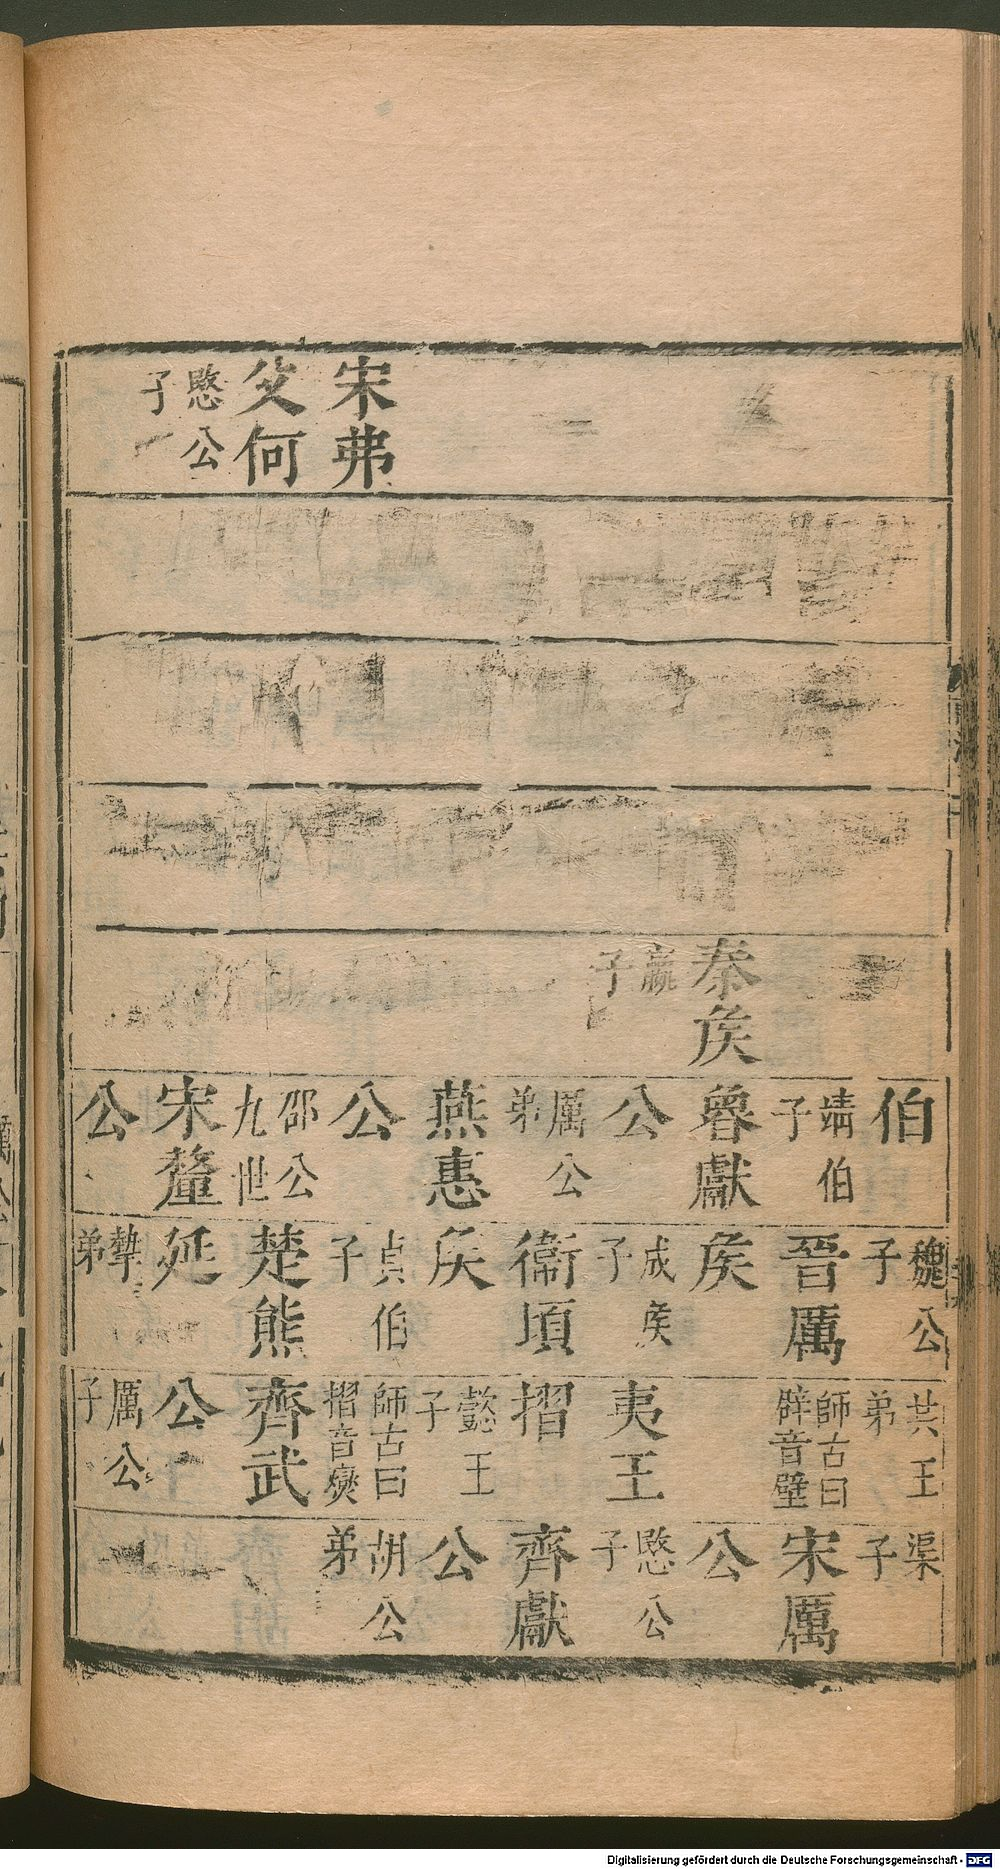 宋弗
父何
愍公
子
秦侯
嬴
子
伯
靖伯
子
魯獻
公
厲公
弟
燕惠
公
邵公
九世
宋釐
公
魏公
子
晉厲
侯
成侯
子
衞頃
侯
貞伯
子
楚熊
延
摯
弟
共王
弟
師古曰
辟音壁
夷王
摺
懿王
子
師古曰
摺音爕
齊武
公
厲公
子
渠
子
宋厲
公
愍公
子
齊獻
公
胡公
弟
Digitalisierung gefördert durch die Deutsche Forschungsgemeinschaft - DFG